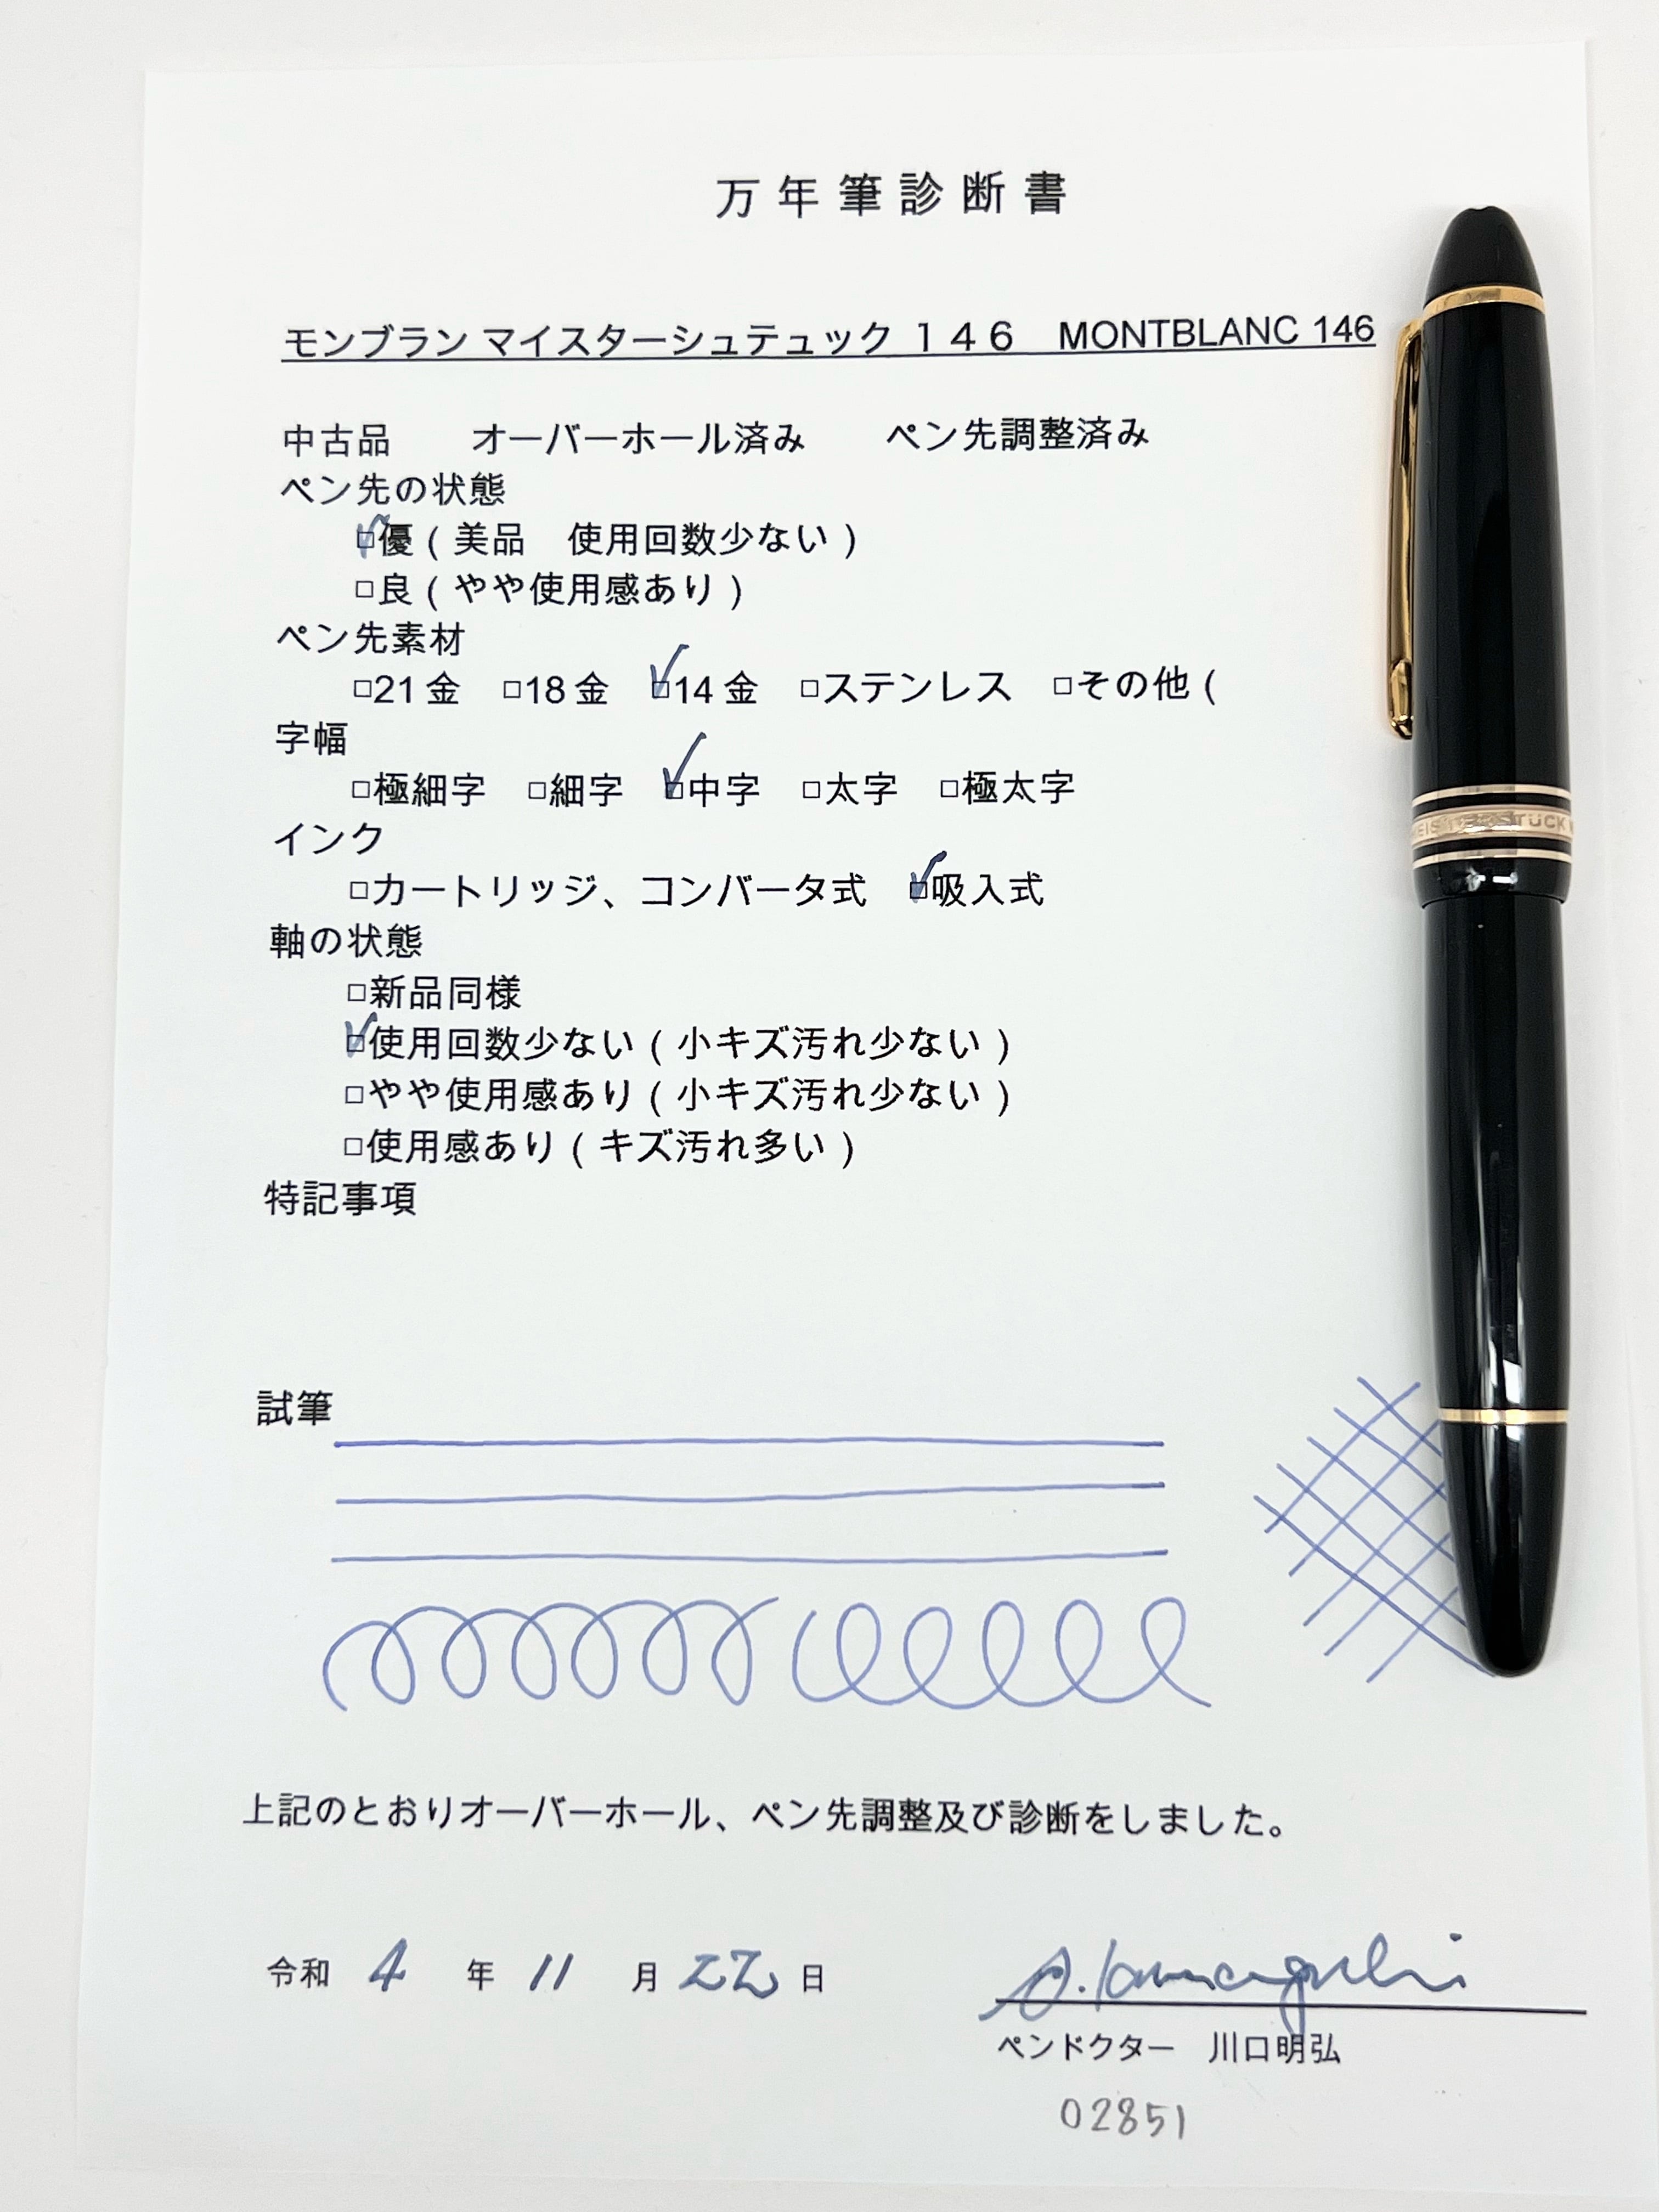 万年筆診断書
モンブラン マイスターシュテュック １４６　MONTBLANC 146
中古品　　オーバーホール済み　　ペン先調整済み
ペン先の状態
☑優（美品　使用回数少ない）
□良（やや使用感あり）
ペン先素材
□21金　□18金　☑14金　□ステンレス　□その他（
字幅
□極細字　□細字　☑中字　□太字　□極太字
インク
□カートリッジ、コンバータ式　☑吸入式
軸の状態
□新品同様
☑使用回数少ない（小キズ汚れ少ない）
□やや使用感あり（小キズ汚れ少ない）
□使用感あり（キズ汚れ多い）
特記事項
試筆
上記のとおりオーバーホール、ペン先調整及び診断をしました。
令和 4 年 11 月 22 日
ペンドクター　川口明弘
02851
EISTERSTÜCK